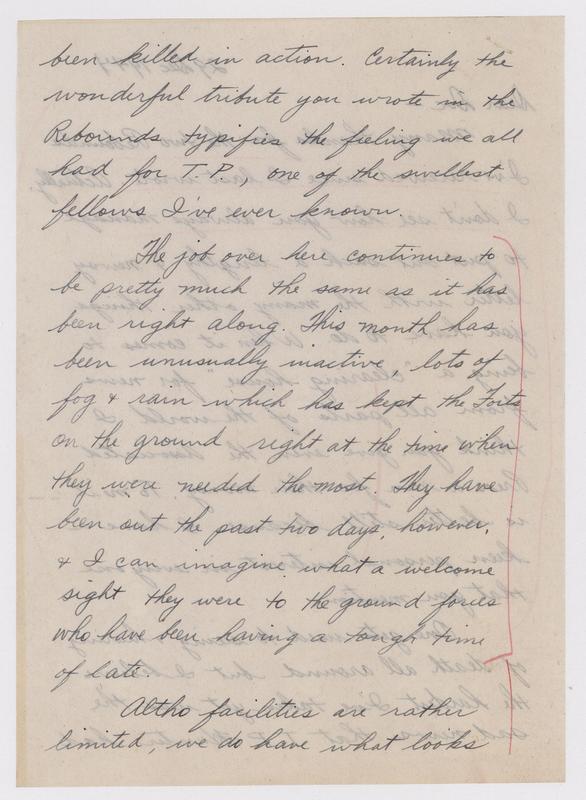 been killed in action. Certainly the
wonderful tribute you wrote in the
Rebounds typifies the feeling we all
had for T. P., one of the swellest
fellows I've ever known.
The job over here continues to
be pretty much the same as it has
been right along. This month has
been unusually inactive, lots of
fog & rain which has kept the Forts
on the ground right at the time when
they were needed the most. They have
been out the past two days, however,
& I can imagine what a welcome
sight they were to the ground forces
who have been having a tough time
of late.
Altho facilities are rather
limited, we do have what looks